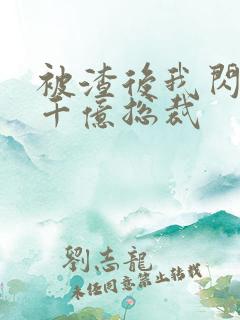 被渣後我閃
千億總裁
劉志龍
未經同意禁止轉載